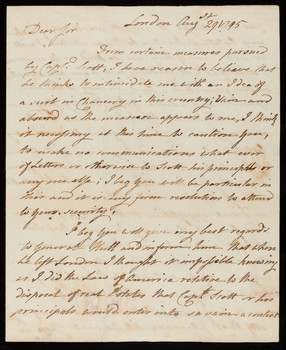 London Augst 29 1795
Dear Sir
From certain measures pursued
by Capt. Scott, I have reason to believe that
he thinks to intimidate me with an Idea of
a suit in Chancery in this country; Vain and
absurd as the measure appears to me, I think
it necessary at this time to caution you,
to make no communications what ever
of Letters or otherwise to Scott his principals or
any one else; I beg you will be particular in
this and it is my firm resolution to attend
to your security.
I beg you will give my best regards
to General Hull and inform him that when
he left London I thought it impossible knowing
as I did the Laws of America relative to the
disposal of real Estates that Capt. Scott or his
principals would enter into so vain a contest